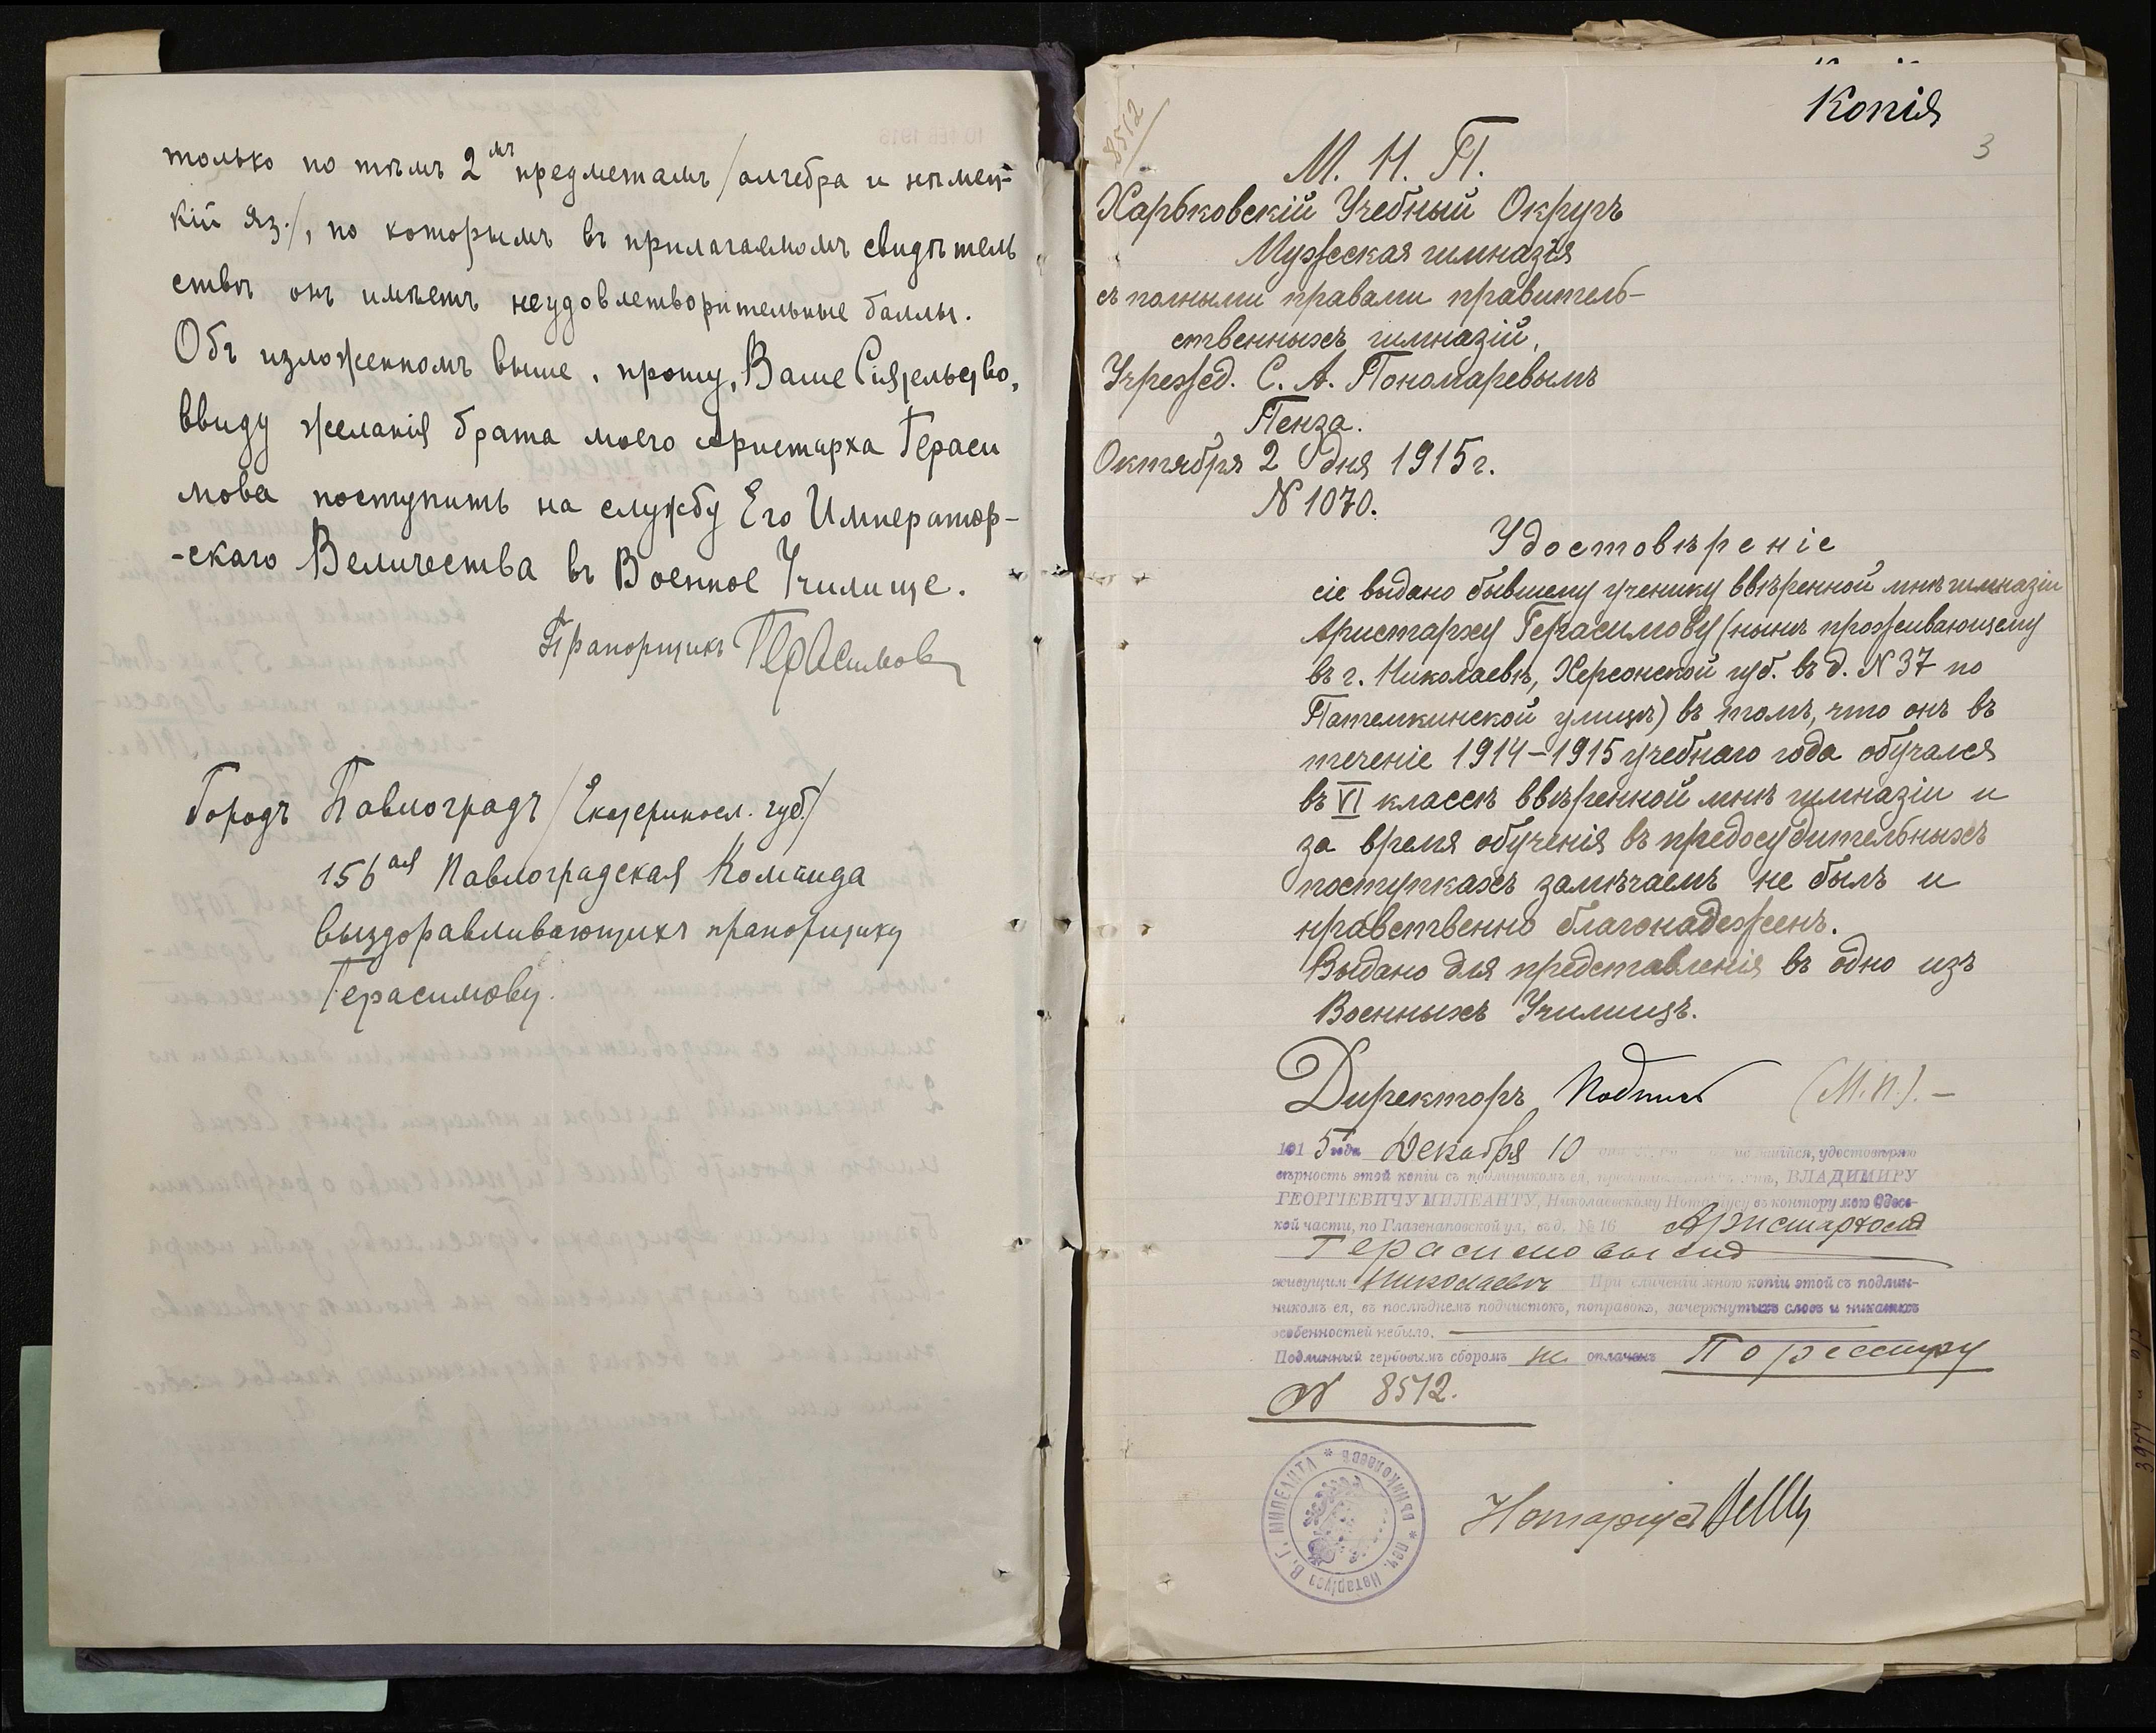 только по тѣмъ 2мъ предметамъ /алгебра и нѣмец-
кій яз./, по которымъ въ прилагаемомъ свидѣтель
ствѣ онъ имѣетъ неудовлетворительные баллы.
Объ изложенномъ выше, прошу, Ваше Сіятельство,
ввиду желанія брата моего Аристарха Гераси
мова поступить на службу Его Император-
-скаго Величества въ Военное Училище.
Прапорщикъ Герасимовъ
Городъ Павлоградъ /Екатериносл. губ./
156ая Павлоградская Команда
выздоравливающихъ прапорщику
Герасимову.
8512
Копія
3
М. Н. П.
Харьковскій Учебный Округъ
Мужеская гимназія
съ полными правами правитель-
ственныхъ гимназій,
Учрежд. С. А. Пономаревымъ
Пенза.
Октября 2 дня 1915 г.
N 1070.
Удостовѣреніе
сіе выдано бывшему ученику ввѣренной мнѣ гимназіи
Аристарху Герасимову (нынѣ проживающему
въ г. Николаевѣ, Херсонской губ. въ д. N 37 по
Патемкинской улицѣ) въ томъ, что онъ въ
теченіе 1914-1915 учебнаго года обучался
въ VI классѣ ввѣренной мнѣ гимназіи и
за время обученія въ предосудительныхъ
поступкахъ замѣчаемъ не былъ и
нравственно благонадеженъ.
Выдано для представленія въ одно изъ
Военныхъ Училищъ.
Директоръ Подпись (М.П.). -
191 5 года Декабря 10 удостовѣряю
вѣрность этой копіи съ подлинникомъ ея, ВЛАДИМИРУ
ГЕОРГІЕВИЧУ МИЛЕАНТУ, Николаевскому Нотаріусу въ контору мою Одес-
кой части, по Глазенаповской ул, въ д. № 16 Аристархомъ
Герасимовымъ
живущим Николаевѣ При сличеніи мною копіи этой съ подлин-
никомъ ея, въ послѣднемъ подчистокъ, поправокъ, зачеркнутыхъ словъ и никакихъ
особенностей небыло.
Подлинный гербовымъ сборомъ не оплаченъ По реестру
N 8512.
* ПЕЧ. Нотаріуса В. Г. МИЛЕАНТА * въ Николаевѣ
Нотаріусъ